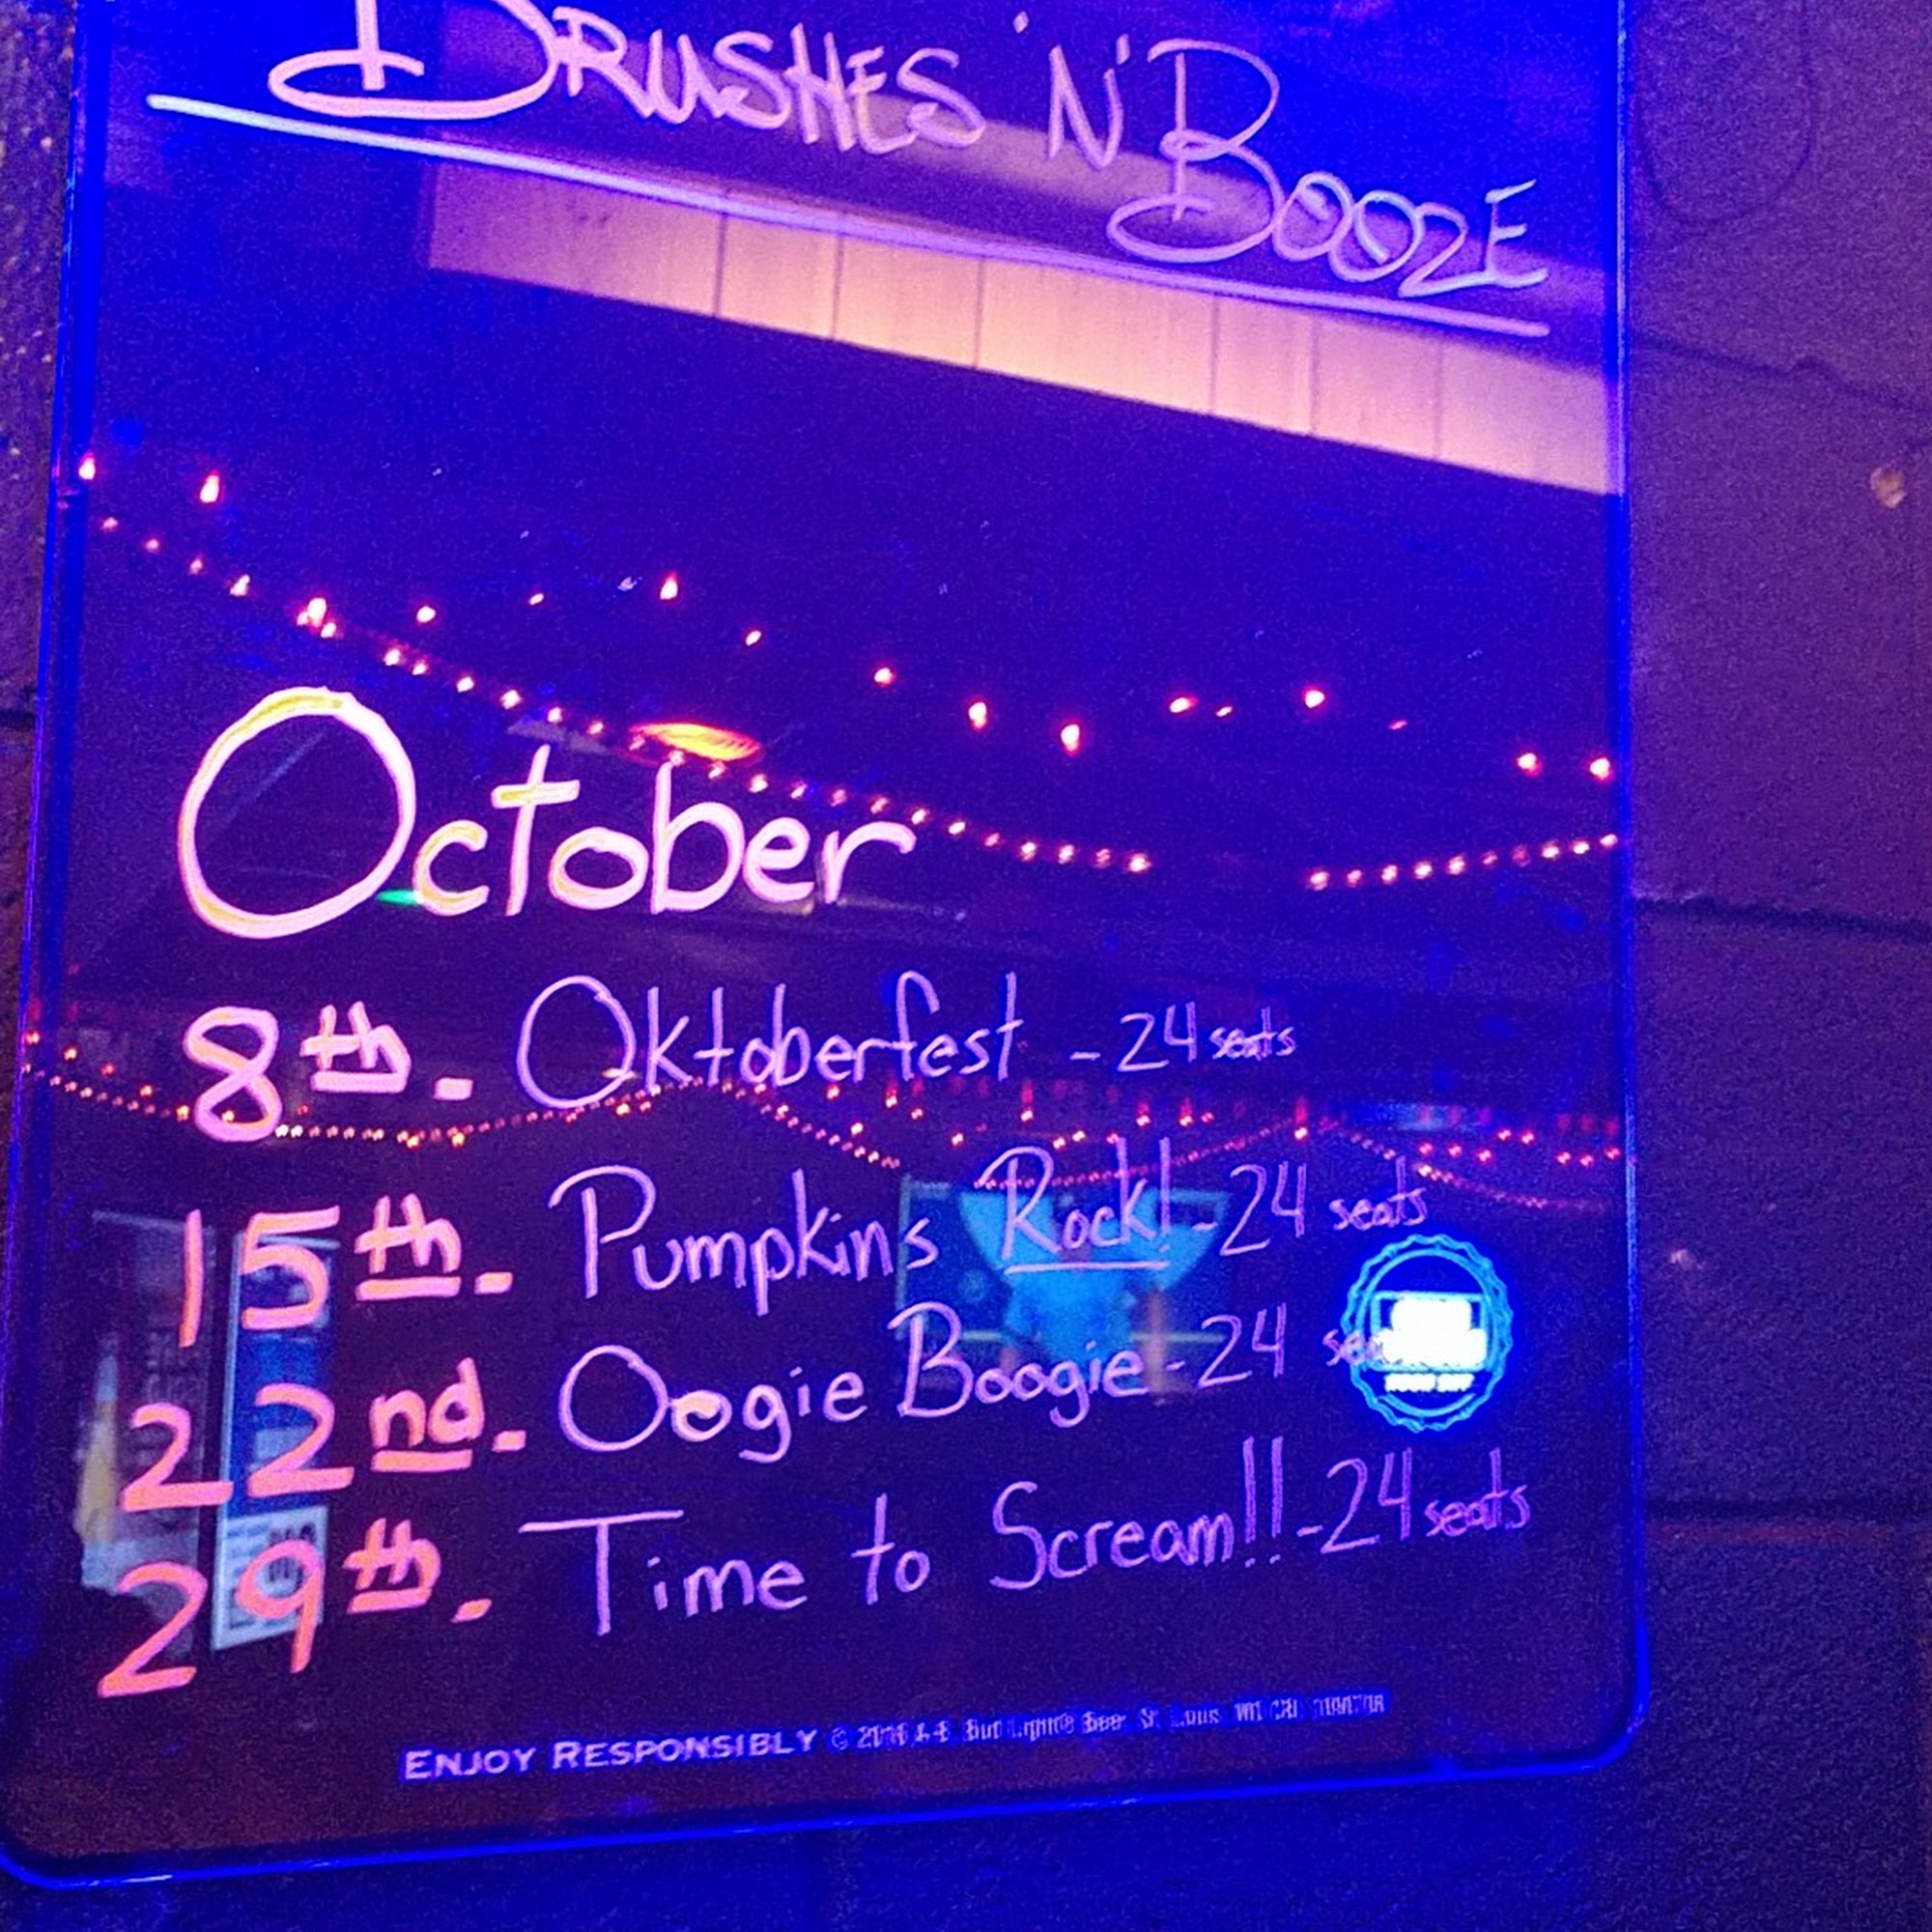 BRUSHES 'N' BOOZE
October
8th. Oktoberfest - 24 seats
15th. Pumpkins Rock! - 24 seats
22nd. Oogie Boogie - 24
29th. Time to Scream!! - 24 seats
ENJOY RESPONSIBLY